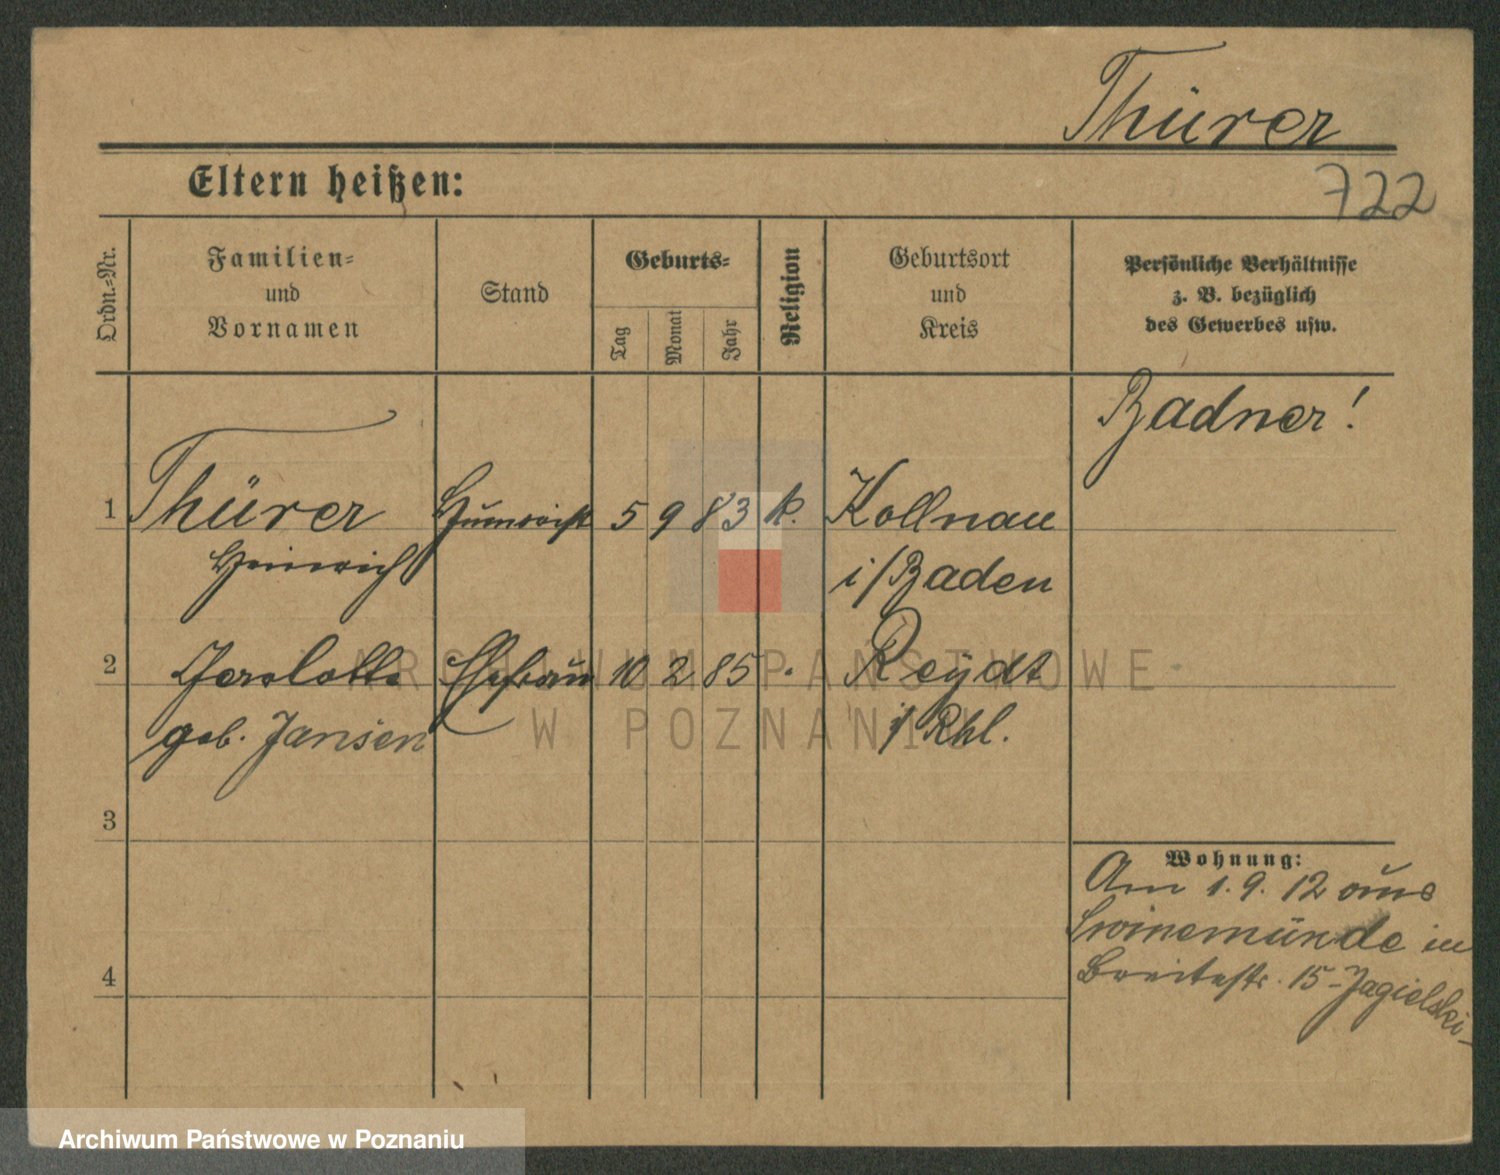 Thürer
722
Eltern heißen:
Ordn.-Nr.
Familien-
und
Vornamen
Stand
Geburts-
Tag
Monat
Jahr
Religion
Geburtsort
und
Kreis
Persönliche Verhältnisse
z. B. bezüglich
des Gewerbes usw.
Badner!
1 Thürer Humorist 5 9 83 k. Kollnau
Heinrich i/Baden
2 Ehefrau 10 2 85 " Reydt
geb. Jansen i/Rhl.
3
4
Wohnung:
Am 1.9.12 aus
Swinemünde in
Breitestr. 15-Jagielski-
ARCHIWUM PAŃSTWOWE
W POZNANIU
Archiwum Państwowe w Poznaniu